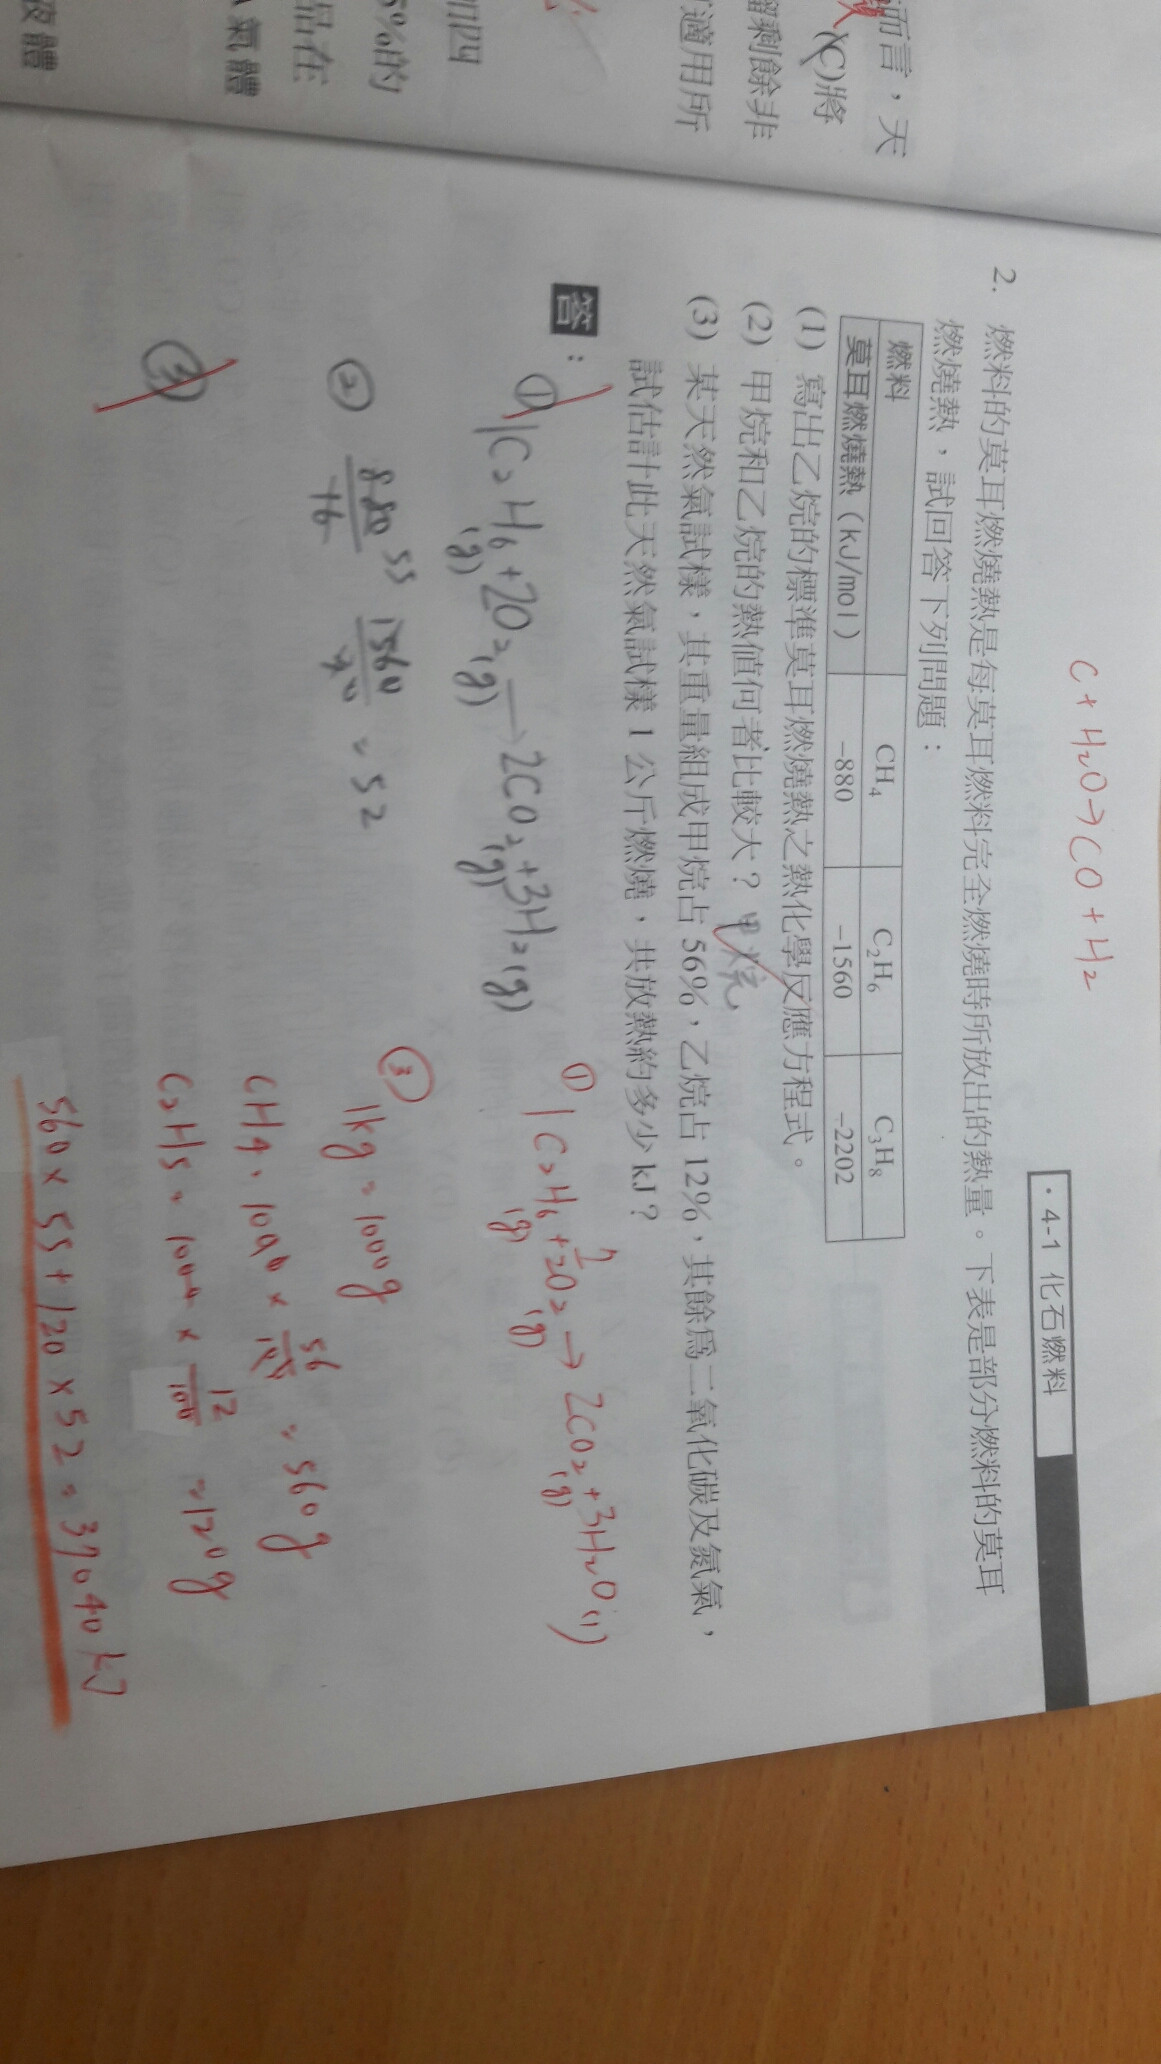 而言，天
(C)將
留剩餘非
適用所
加四
5%的
品在
氣體
液體
C+H₂O→CO+H₂
·4-1 化石燃料
2. 燃料的莫耳燃燒熱是每莫耳燃料完全燃燒時所放出的熱量。下表是部分燃料的莫耳
燃燒熱，試回答下列問題：
燃料 CH₄ C₂H₆ C₃H₈
莫耳燃燒熱（kJ/mol） -880 -1560 -2202
(1) 寫出乙烷的標準莫耳燃燒熱之熱化學反應方程式。
(2) 甲烷和乙烷的熱值何者比較大？甲烷
(3) 某天然氣試樣，其重量組成甲烷占 56%，乙烷占 12%，其餘為二氧化碳及氮氣，
試估計此天然氣試樣 1 公斤燃燒，共放熱約多少 kJ？
答：
① 1C₂H₆(g)+2O₂(g)→2CO₂(g)+3H₂(g)
② 880/16 55 1560/30 = 52
③
① 1C₂H₆(g)+7/2O₂(g)→2CO₂(g)+3H₂O(l)
③ 1kg=1000g
CH4=1000×56/100=560g
C2H5=1000×12/100=120g
560×55+120×52=37040kJ